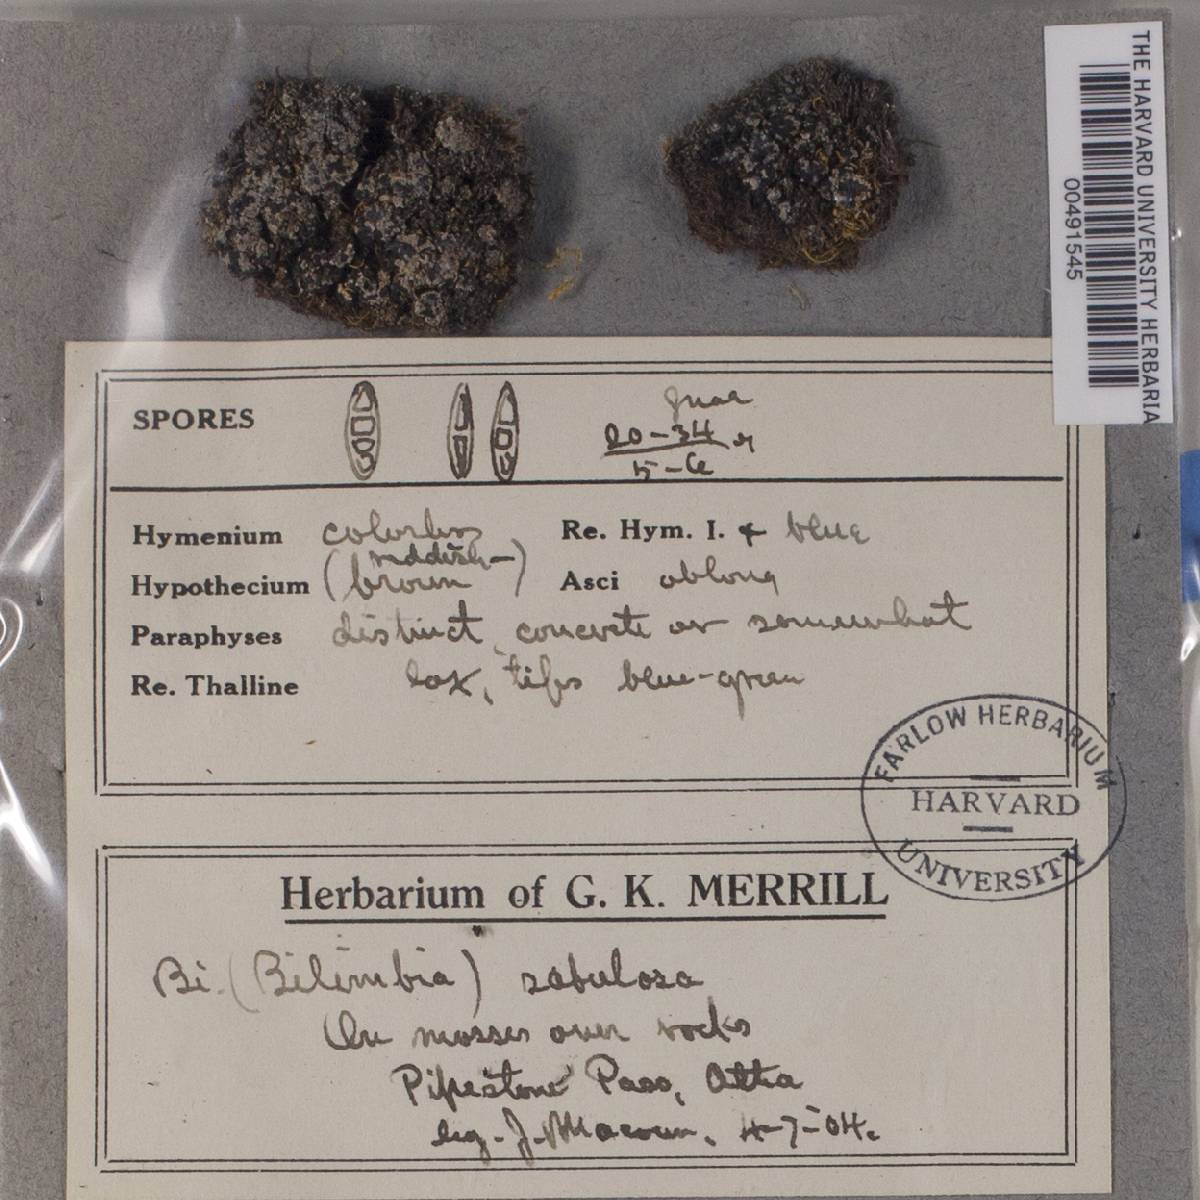 THE HARVARD UNIVERSITY HERBARIA
00491545
SPORES
20-34
5-6
Hymenium colorless Re. Hym. I. + blue
Hypothecium (reddish-brown) Asci oblong
Paraphyses distinct, concrete or somewhat
Re. Thalline lax, tips blue-green
FARLOW HERBARIUM
HARVARD
UNIVERSITY
Herbarium of G. K. MERRILL
Bi. (Bilimbia) sabulosa
On mosses over rocks
Pipestone Pass, Altta
leg. J. Macoun, 4-7-04.